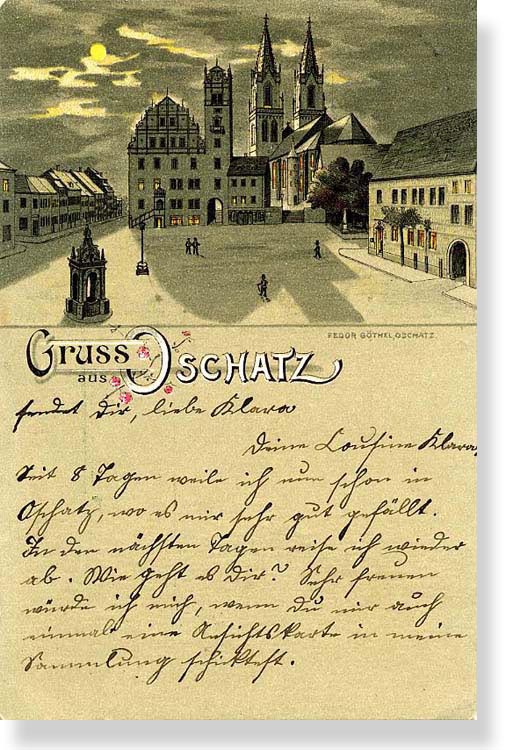 FEDOR GÖTHEL, OSCHATZ.
Gruss
aus OSCHATZ
sendet Dir, liebe Klara
Deine Cousine Klara,
Seit 8 Tagen weile ich nun schon in
Oschatz, wo es mir sehr gut gefällt.
In den nächsten Tagen reise ich wieder
ab. Wie geht es Dir? Sehr freuen
würde ich mich, wenn du mir auch
einmal eine Ansichtskarte in meine
Sammlung schicktest.